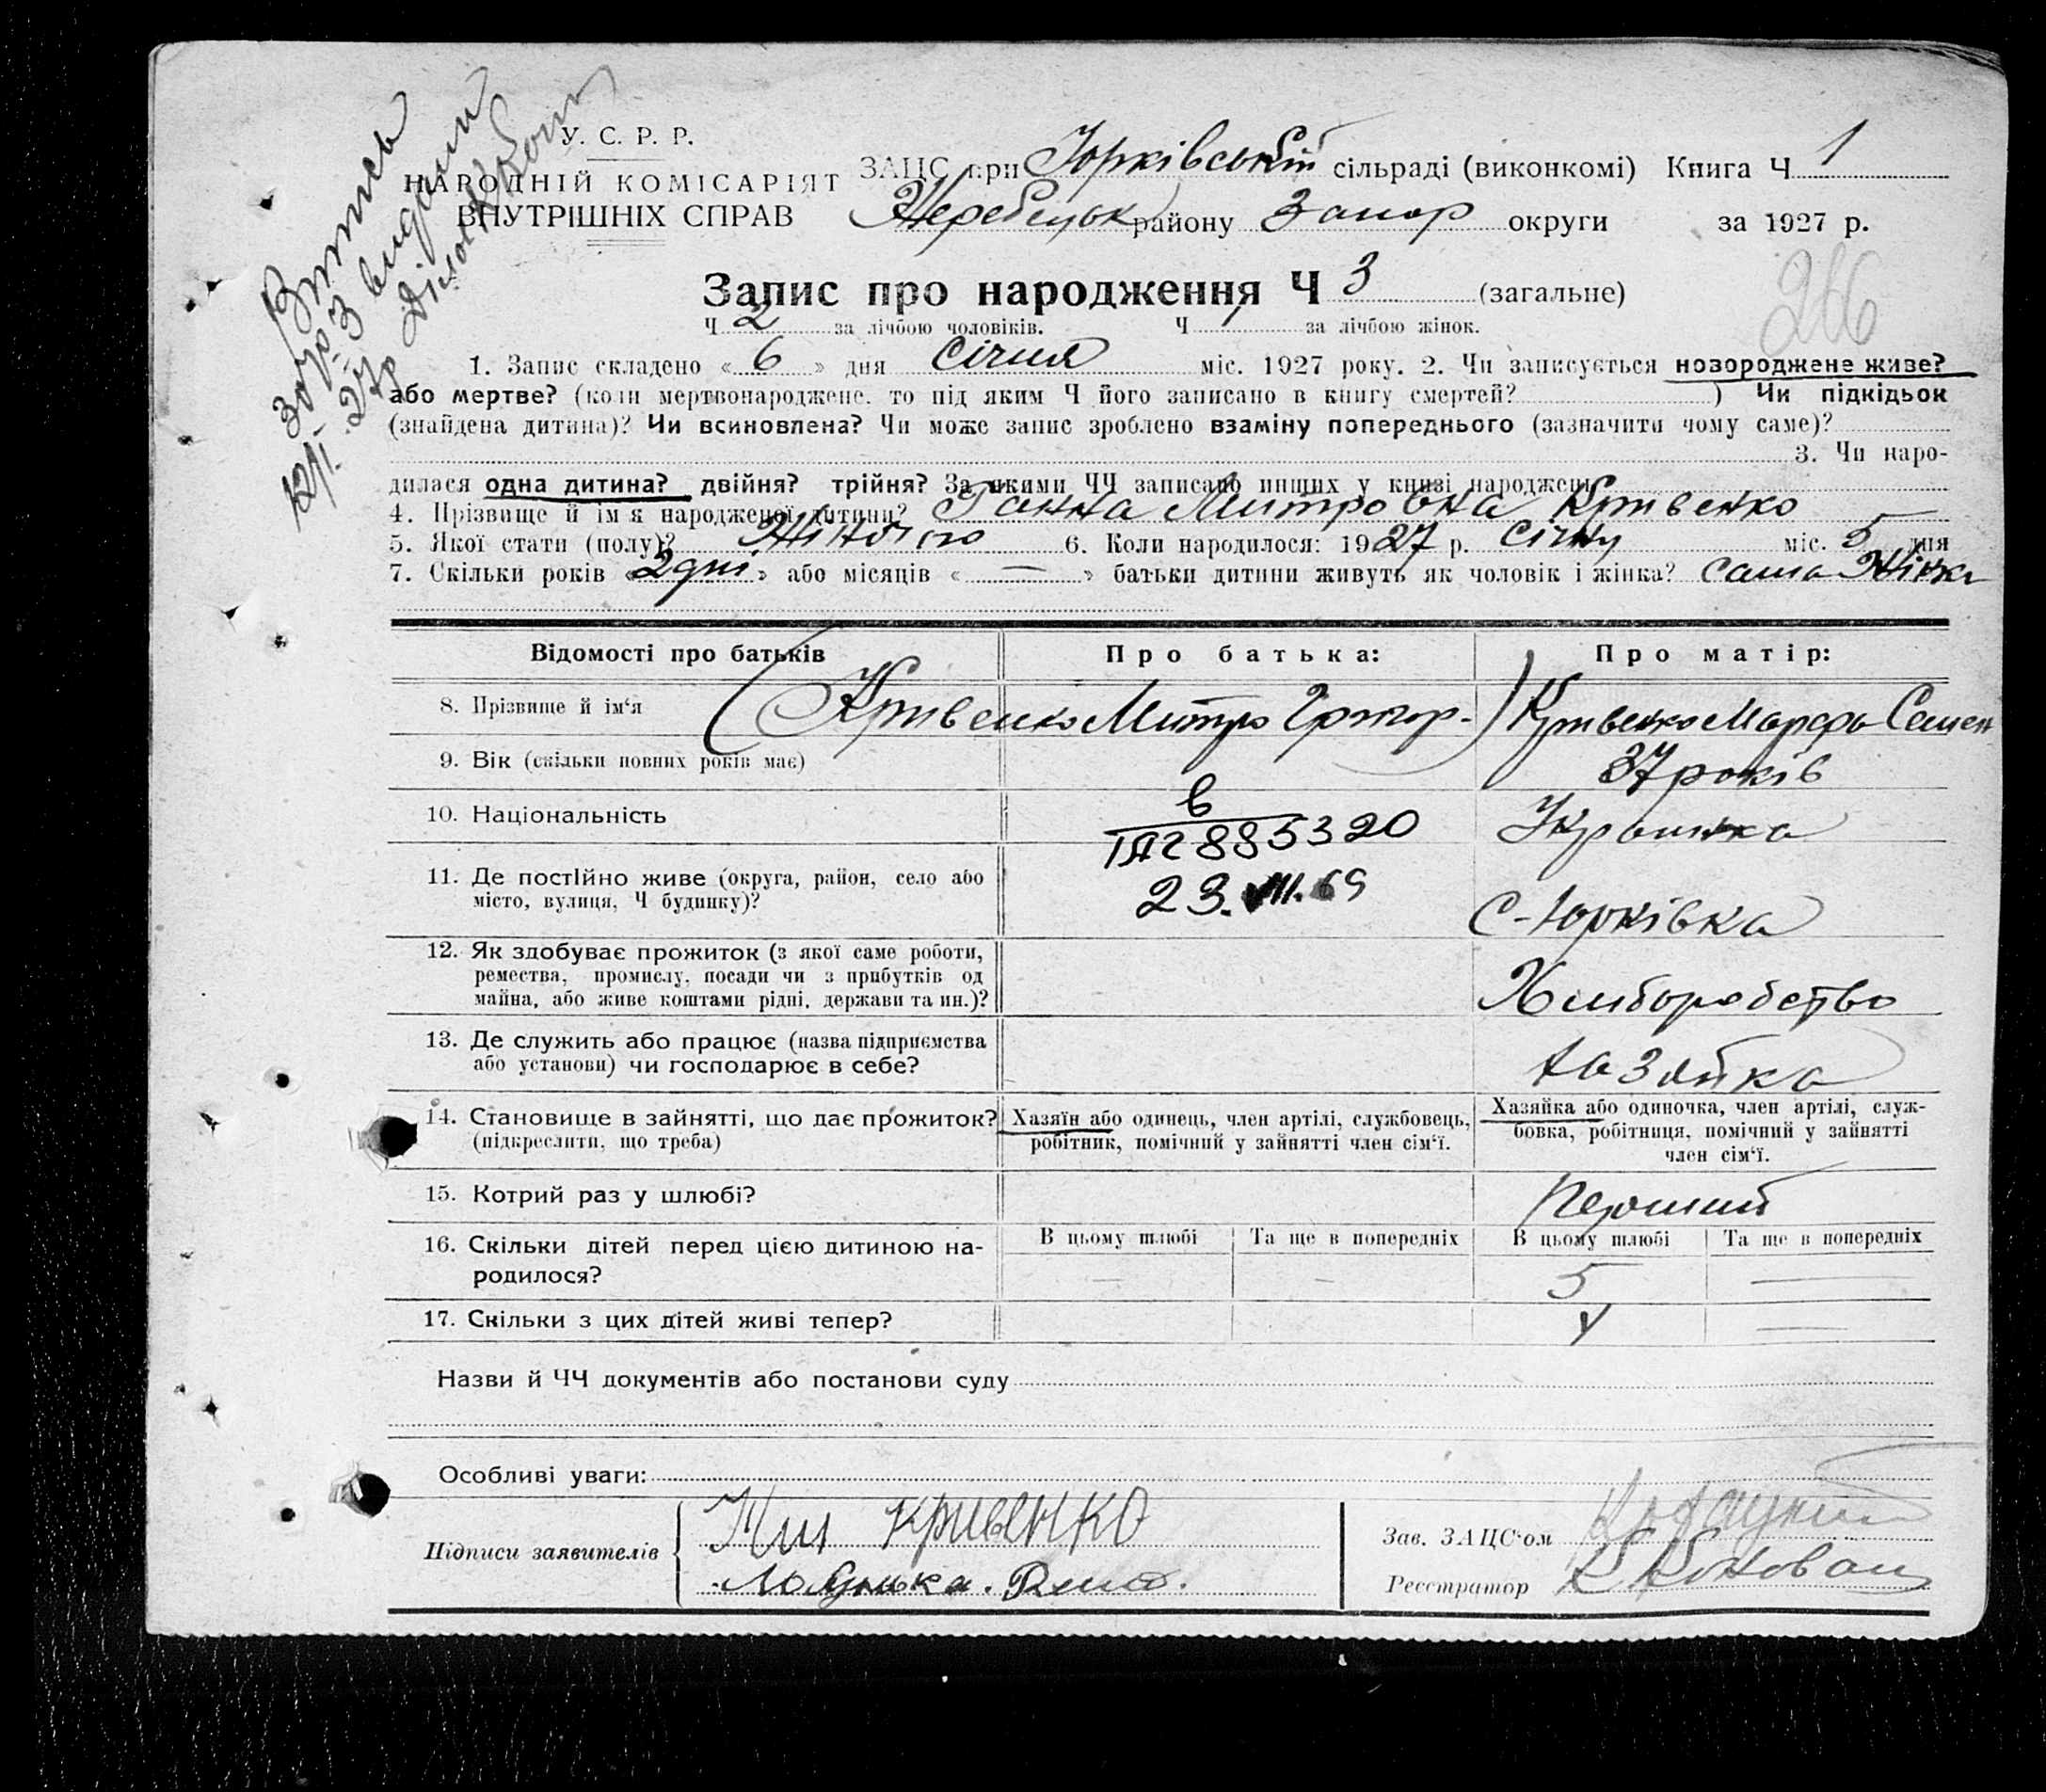 Витись
У. С. Р. Р.
НАРОДНІЙ КОМІСАРІЯТ
ВНУТРІШНІХ СПРАВ
ЗАЦС при Юрківській сільраді (виконкомі) Книга Ч 1
Жеребецьк району Запор округи за 1927 р.
Запис про народження Ч 3 (загальне)
266
Ч 2 за лічбою чоловіків. Ч 1 за лічбою жінок.
1. Запис складено «6» дня Січня міс. 1927 року. 2. Чи записується новороджене живе?
або мертве? (коли мертвонароджене, то під яким Ч його записано в книгу смертей? ) Чи підкідьок
(знайдена дитина)? Чи всиновлена? Чи може запис зроблено взаміну попереднього (зазначити чому саме)?
3. Чи наро-
дилася одна дитина? двійня? трійня? За якими ЧЧ записано инших у книзі народжень
4. Прізвище й ім'я народженої дитини? Ганна Митровна Кривенко
5. Якої стати (полу)? Жіночо 6. Коли народилося: 1927 р. Січня міс. 5 дня
7. Скільки років «2 дні» або місяців «—» батьки дитини живуть як чоловік і жінка? сама Жінка
Відомості про батьків Про батька: Про матір:
8. Прізвище й ім'я (Кривенко Митро Григор-) Кривенко Марфа Семен
9. Вік (скільки повних років має) 37 років
10. Національність Українка
в
ІЯГ 885320
23. VII. 69
11. Де постІйно живе (округа, район, село або
місто, вулиця, Ч будинку)? С-Юрківка
12. Як здобуває прожиток (з якої саме роботи,
ремества, промислу, посади чи з прибутків од
майна, або живе коштами рідні, держави та ин.)? Хлиборобство
13. Де служить або працює (назва підприємства
або установи) чи господарює в себе? хазяйка
14. Становище в зайнятті, що дає прожиток? Хазяїн або одинець, член артілі, службовець, Хазяйка або одиночка, член артілі, служ-
(підкреслити, що треба) робітник, помічний у зайнятті член сім'ї. бовка, робітниця, помічний у зайнятті
член сім'ї.
15. Котрий раз у шлюбі? Перший
16. Скільки дітей перед цією дитиною на- В цьому шлюбі Та ще в попередніх В цьому шлюбі Та ще в попередніх
родилося? — — 5 —
17. Скільки з цих дітей живі тепер? 4 —
Назви й ЧЧ документів або постанови суду
Особливі уваги:
Підписи заявителів Кривенко
Зав. ЗАЦС'ом
Реєстратор